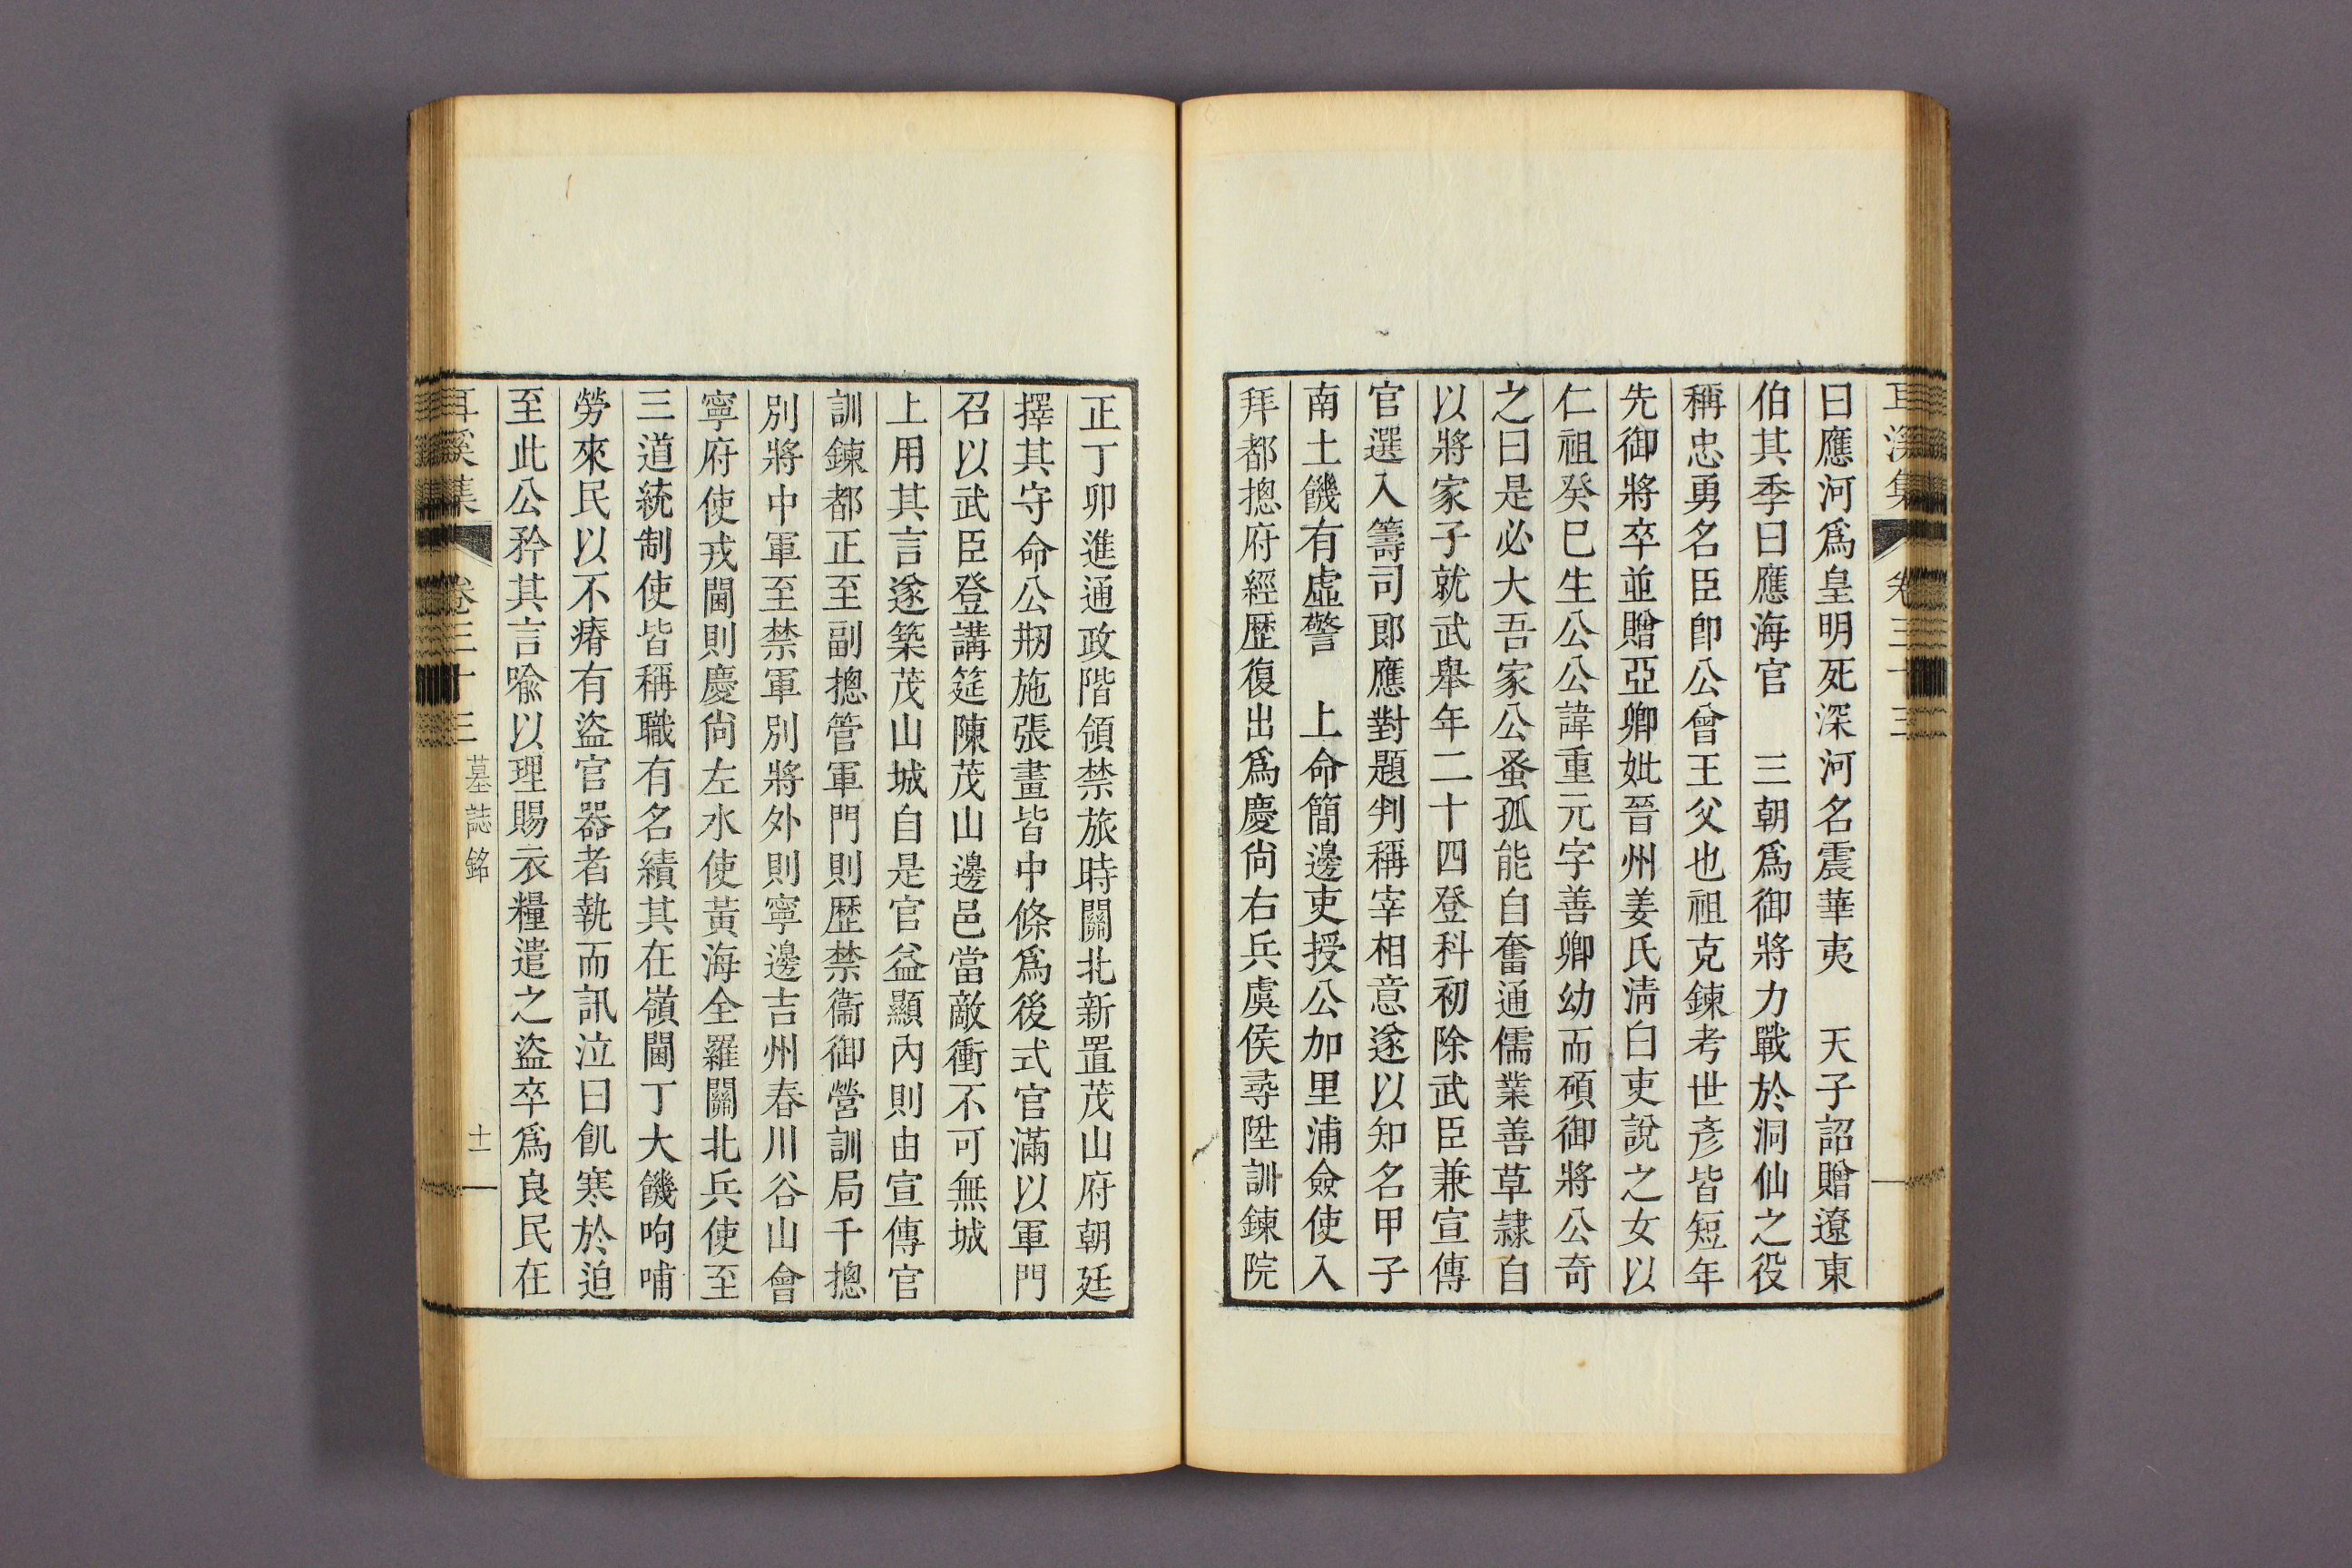 耳溪集 卷三十三
曰應河爲皇明死深河名震華夷　天子詔贈遼東
伯其季曰應海官　三朝爲御將力戰於洞仙之役
稱忠勇名臣卽公曾王父也祖克鍊考世彥皆短年
先御將卒並贈亞卿妣晉州姜氏淸白吏說之女以
仁祖癸巳生公公諱重元字善卿幼而碩御將公奇
之曰是必大吾家公蚤孤能自奮通儒業善草隷自
以將家子就武舉年二十四登科初除武臣兼宣傳
官選入籌司郎應對題判稱宰相意遂以知名甲子
南土饑有虛警　上命簡邊吏授公加里浦僉使入
拜都摠府經歷復出爲慶尙右兵虞侯尋陞訓鍊院
正丁卯進通政階領禁旅時關北新置茂山府朝廷
擇其守命公刱施張畫皆中條爲後式官滿以軍門
召以武臣登講筵陳茂山邊邑當敵衝不可無城
上用其言遂築茂山城自是官益顯內則由宣傳官
訓鍊都正至副摠管軍門則歷禁衞御營訓局千摠
別將中軍至禁軍別將外則寧邊吉州春川谷山會
寧府使戎閫則慶尙左水使黃海全羅關北兵使至
三道統制使皆稱職有名績其在嶺閫丁大饑呴哺
勞來民以不瘠有盜官器者執而訊泣曰飢寒於迫
至此公矜其言喩以理賜衣糧遣之盜卒爲良民在
耳溪集 卷三十三 墓誌銘 十一